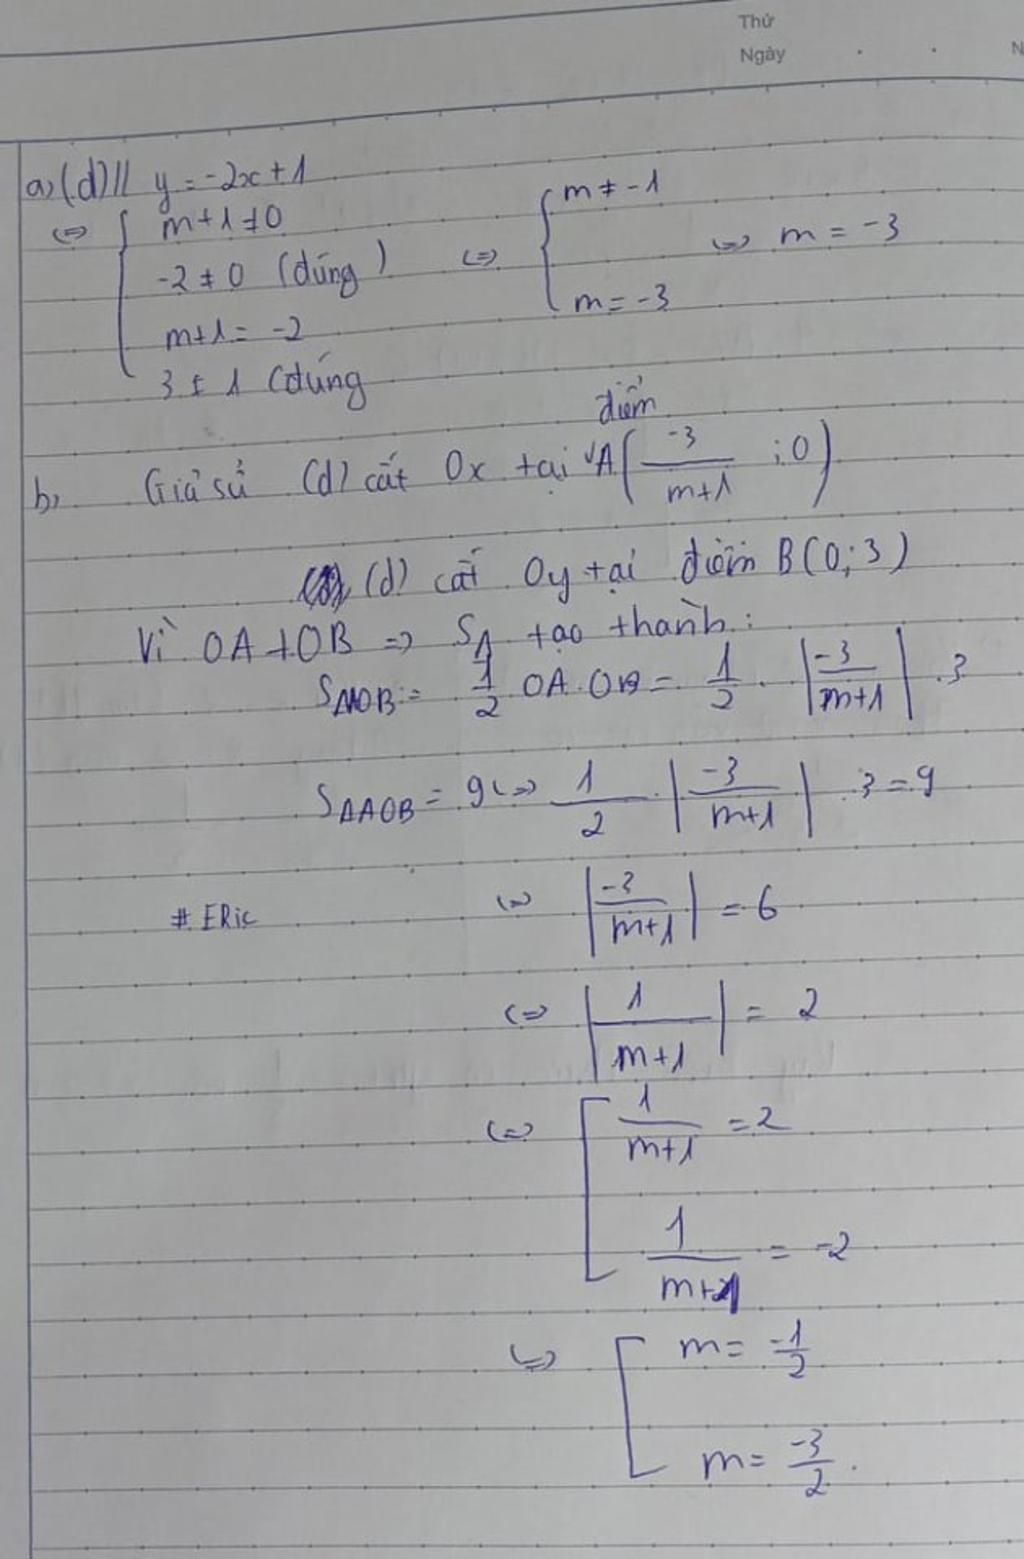 Thứ
Ngày
N
a) (d) // y = -2x + 1
⇔ { m+1 ≠ 0 ⇔ { m ≠ -1
-2 ≠ 0 (đúng) ⇔ m = -3
m+1 = -2 m = -3
3 ≠ 1 (đúng
điểm
b) Giả sử (d) cắt Ox tại A(-3/(m+1) ; 0)
(d) cắt Oy tại điểm B(0;3)
Vì OA ⊥ OB => S∆ tạo thành:
S∆AOB = 1/2 OA.OB = 1/2 . |-3/(m+1)| .3
S∆AOB = 9 ⇔ 1/2 . |-3/(m+1)| .3 = 9
# ERic ⇔ |-3/(m+1)| = 6
⇔ |1/(m+1)| = 2
⇔ [ 1/(m+1) = 2
1/(m+1) = -2
⇔ [ m = -1/2
m = -3/2 .